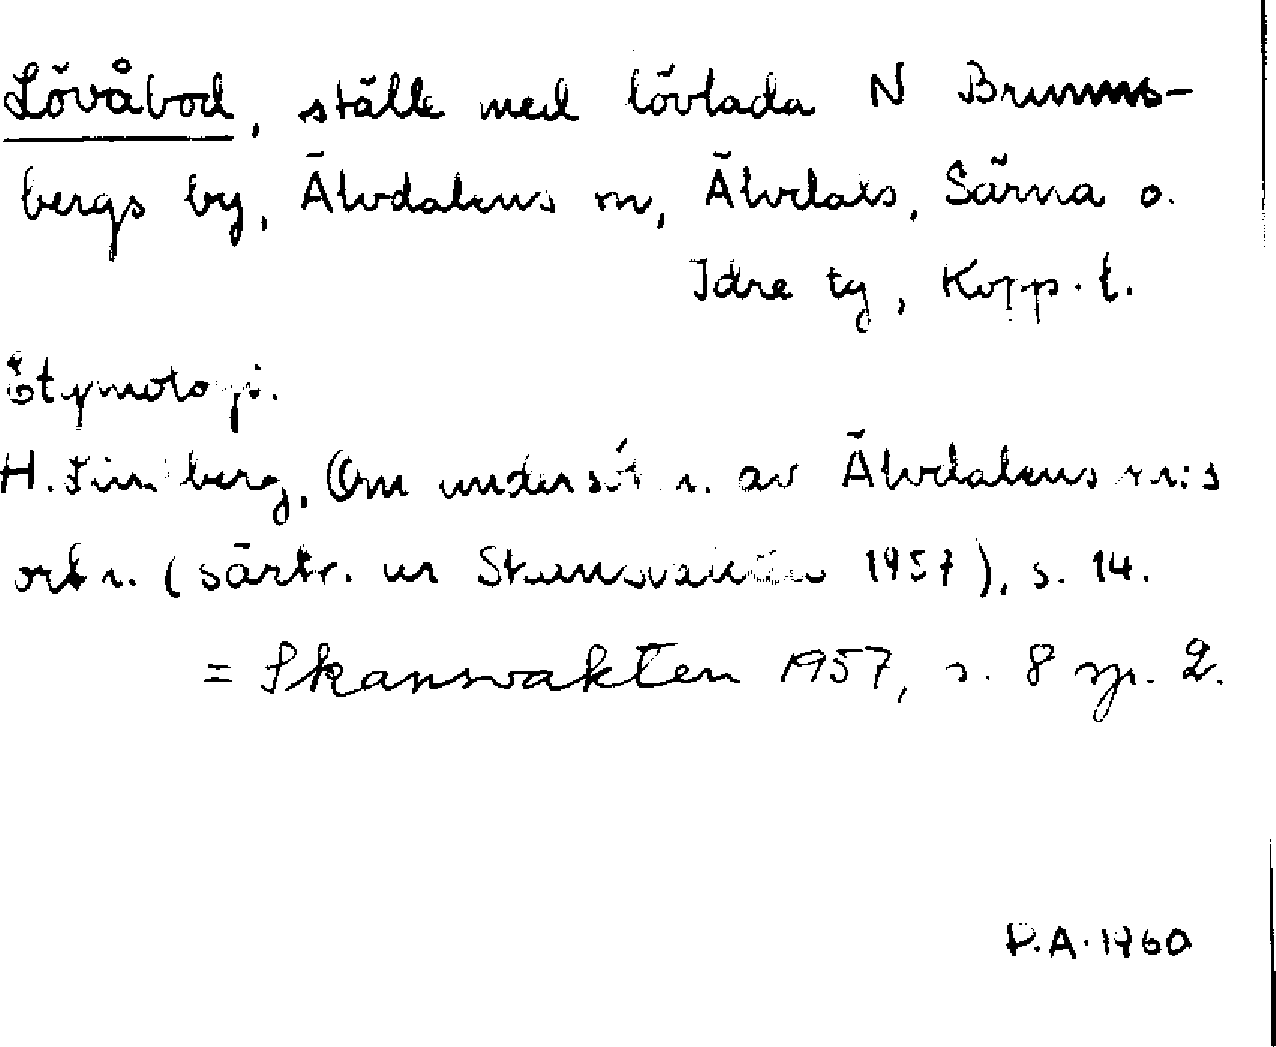 Lövåbod, ställe med lövlada N Brunns-
bergs by, Älvdalens sn, Älvdals, Särna o.
Idre tg, Kopp. l.
Etymologi.
H. berg, Om undersökn. av Älvdalens sn:s
ortn. (särtr. ur Skansvakten 1957), s. 14.
= Skansvakten 1957, s. 8 sp. 2.
P.A. 1960